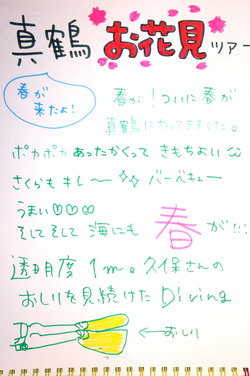 真鶴 お花見 ツアー
春が
来たよ!
春が!ついに春が
真鶴にやってきました。
ポカポカあったかくって きもちよい
さくらも キレ〜 バーベキュー
うまい♡♡♡
そしてそして 海にも 春が!!!
透明度 1m。久保さんの
おしりを見続けた Diving
←おしり